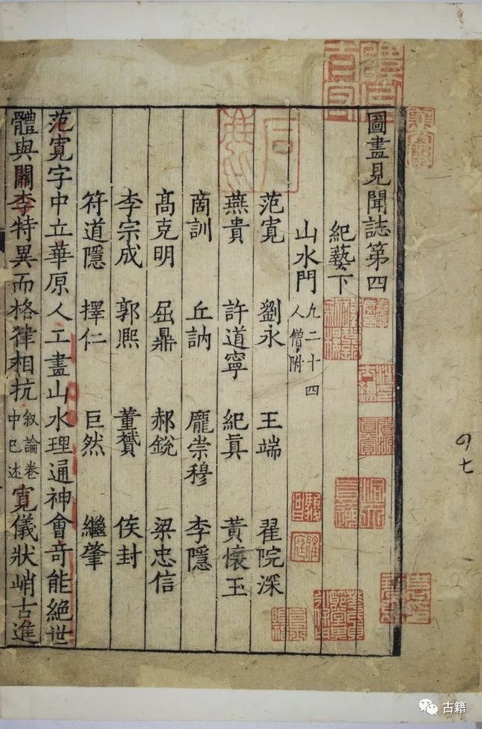 圖畫見聞誌第四
紀藝下
山水門 凡二十四人僧附
范寛 劉永 王端 翟院深
燕貴 許道寧 紀眞 黃懷玉
商訓 丘訥 龐崇穆 李隱
髙克明 屈鼎 郝銳 梁忠信
李宗成 郭熈 董贇 侯封
符道隱 擇仁 巨然 繼肇
范寛字中立華原人工畫山水理通神會奇能絶世
體與關李特異而格律相抗叙論卷中已述寛儀狀峭古進
古籍